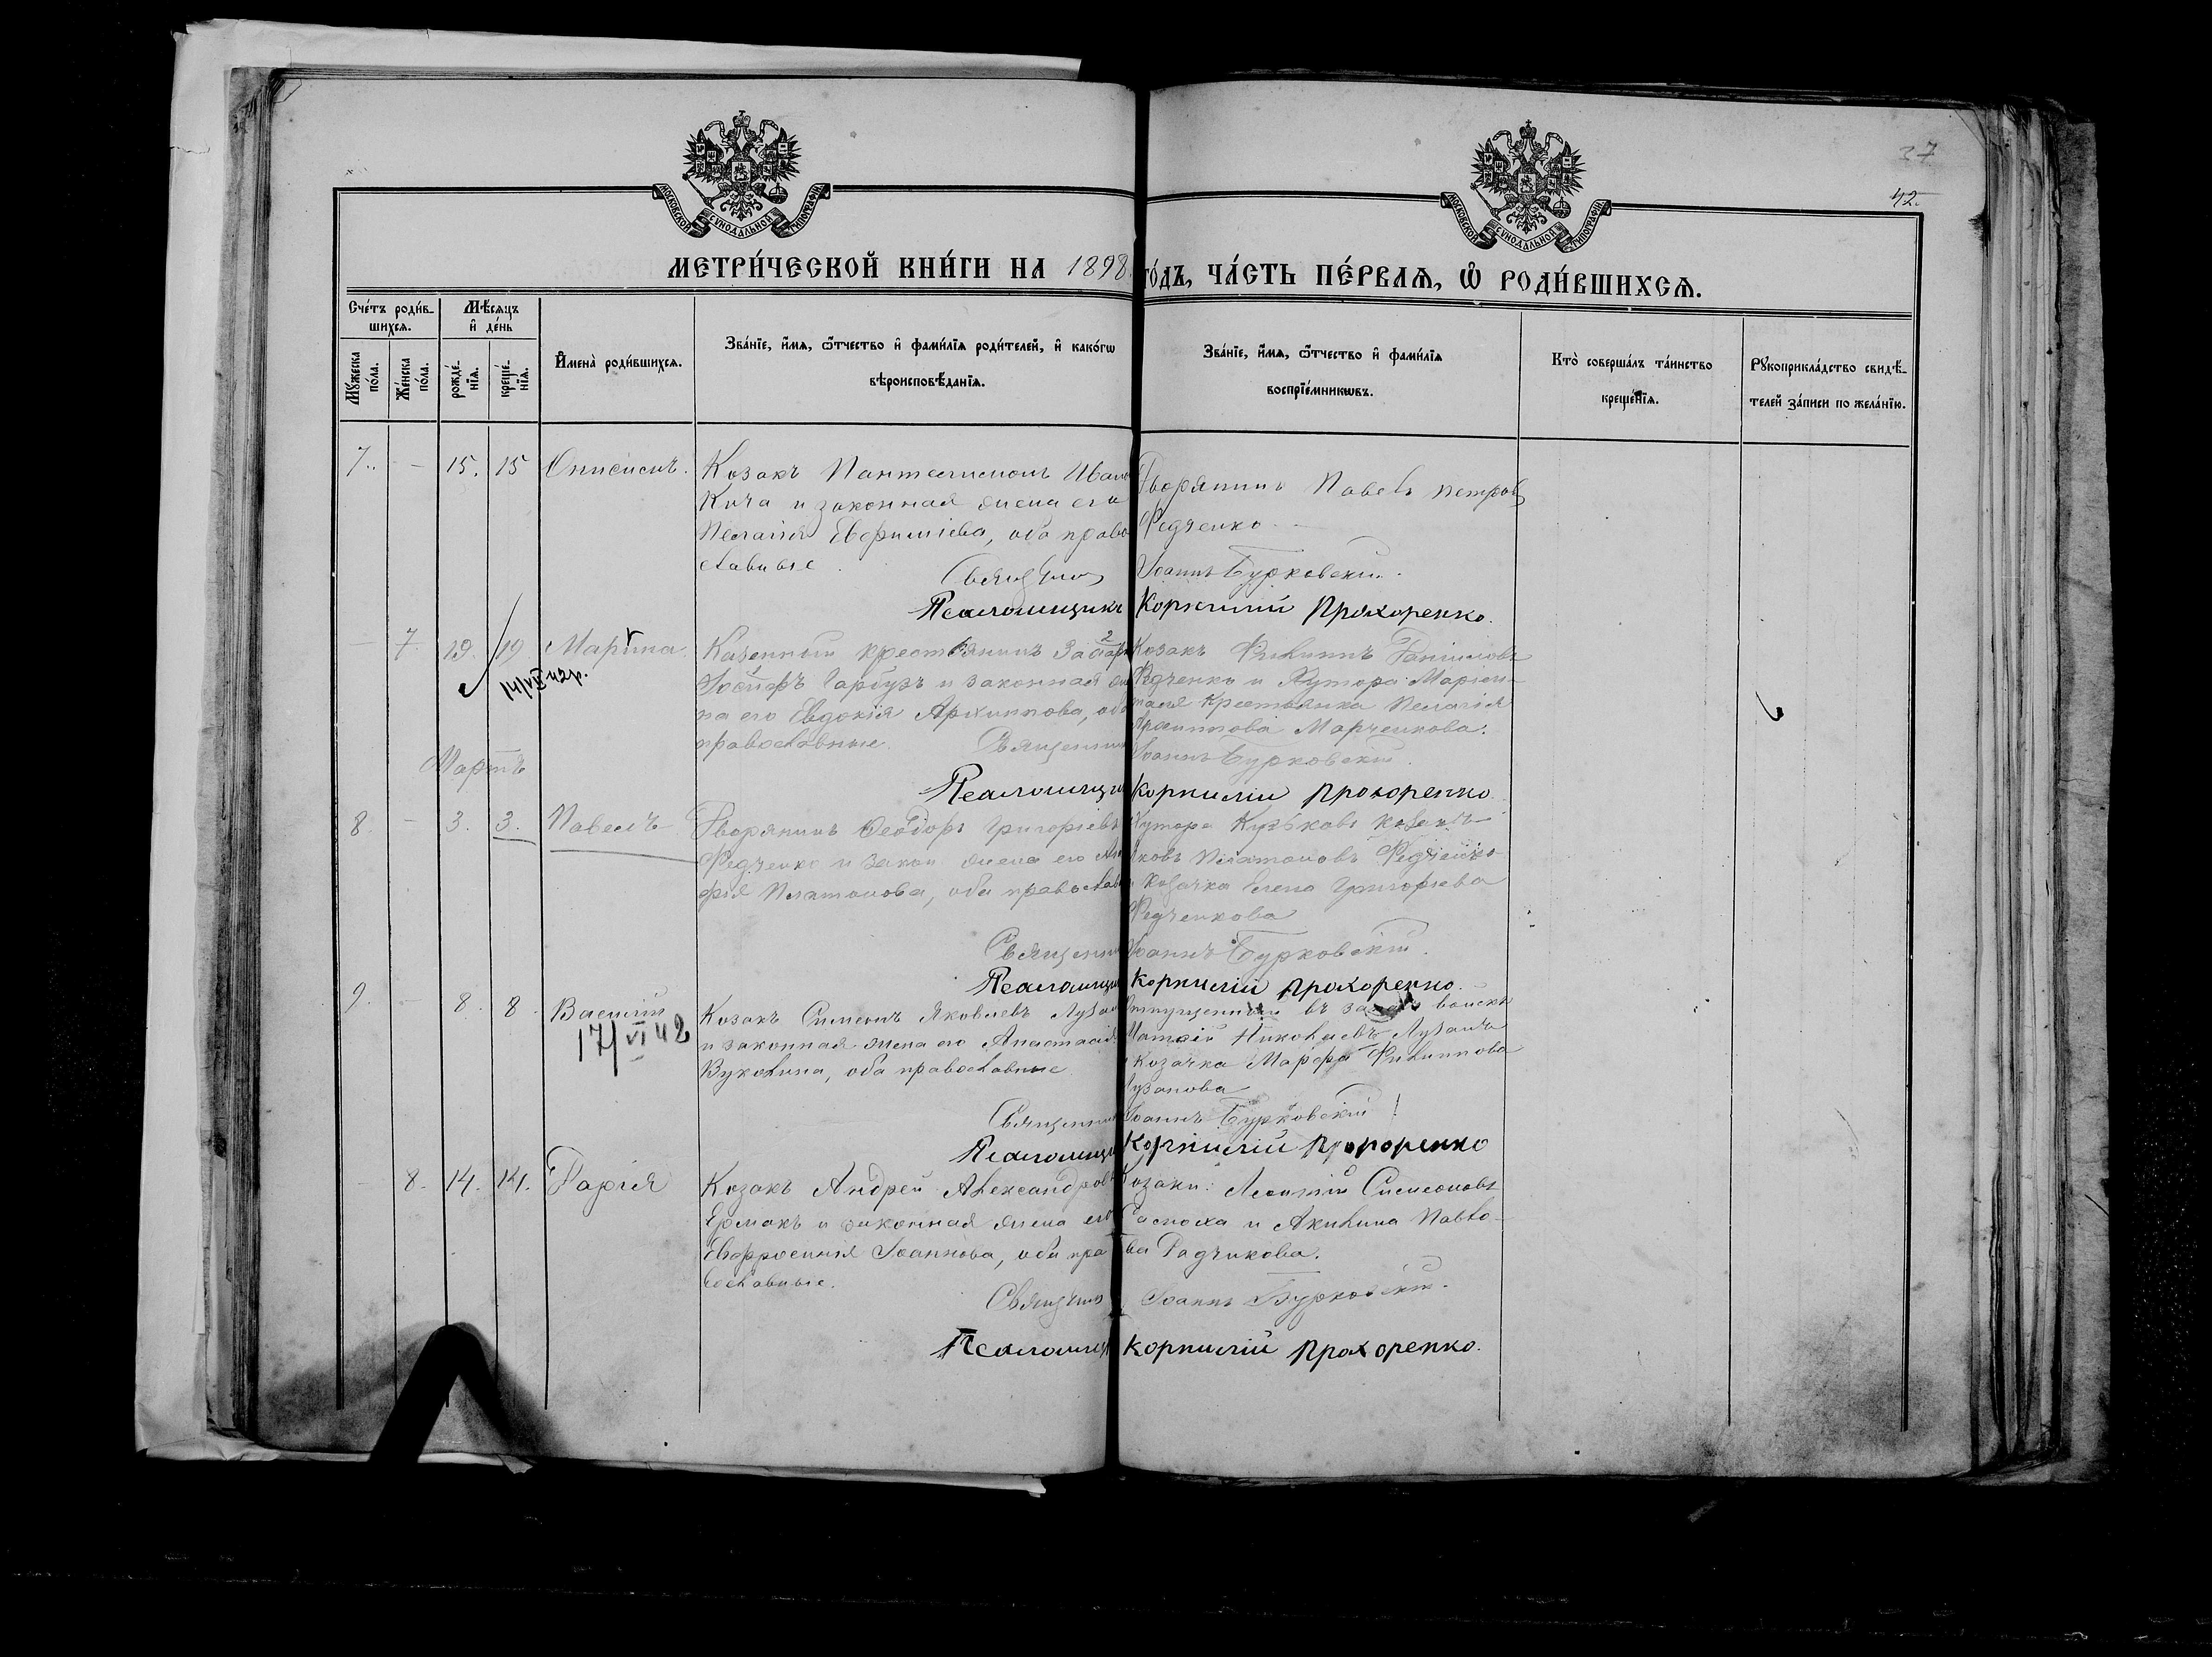 37
42.
МОСКОВСКОЙ СѴНОДАЛЬНОЙ ТИПОГРАФІИ
МОСКОВСКОЙ СѴНОДАЛЬНОЙ ТИПОГРАФІИ
МЕТРИ́ЧЕСКОЙ КНИ́ГИ НА 1898 ГО́ДЪ, ЧА́СТЬ ПЕ́РВАЯ, Ѡ҆ РОДИ́ВШИХСЯ.
Сче́тъ роди́в-
шихся.
Мѣ́сяцъ
и҆ де́нь
Мꙋжеска по́ла.
Же́нска по́ла.
рожде́-нїя.
креще́-нїя.
И҆мена̀ роди́вшихся.
Зва́нїе, и҆́мя, ѻ҆́тчество и҆ фами́лїя роди́телей, и҆ како́гѡ
вѣроисповѣ́данїя.
Зва́нїе, и҆́мя, ѻ҆́тчество и҆ фами́лїя
воспрїе́мникѡвъ.
Кто̀ соверша́лъ та́инство
креще́нїя.
Рꙋкоприкла́дство свидѣ́-
телей за́писи по жела́нїю.
7. - 15. 15 Онисимъ.
Козакъ Пантелеимонъ Иван
Кича и законная жена его
Пелагія Евфиміева, оба право
славные.
Дворянинъ Павелъ Петровъ
Федченко
Священ Іоаннъ Бурковскій.
Псаломщикъ Корнилій Прохоренко.
- 7. 19. 19 Марина.
14/VII 42р.
Казенный крестьянинъ
Іосифъ Гарбузъ и законная же
на его Евдокія Архиппова, оба
православные.
Козакъ Филиппъ Даниловъ
Федченко и Хутора
крестьянка Пелагія
Архиппова Марченкова.
Священник Іоаннъ Бурковскій.
Псаломщи Корнилій Прохоренко.
Мартъ
8. - 3. 3. Павелъ
Дворянинъ Ѳеодоръ Григорьевъ
Федченко и закон жена его
Платонова, оба православн
Хутора козакъ
Яковъ Платоновъ Федченко
и козачка Елена Григорьева
Федченкова
Священник Іоаннъ Бурковскій.
Псаломщи Корнилій Прохоренко.
9. - 8. 8. Василій
17/VI 42
Козакъ Симеонъ Яковлевъ Лузан
и законная жена его Анастасія
Вуколина, оба православные
Отпущенный въ войскъ
Николаевъ Лузанъ
и козачка Марфа Филиппова
Лузанова
Священник Іоаннъ Бурковскій
Псаломщи Корнилій Прохоренко
- 8. 14. 14. Дарія
Козакъ Андрей Александров
Ермакъ и законная жена его
Евфросинія Іоаннова, оба пра
вославные.
Козаки: Леонтій Симеоновъ
и Акилина Павло-
ва Радчикова.
Священ Іоаннъ Бурковскій.
Псаломщ Корнилій Прохоренко.